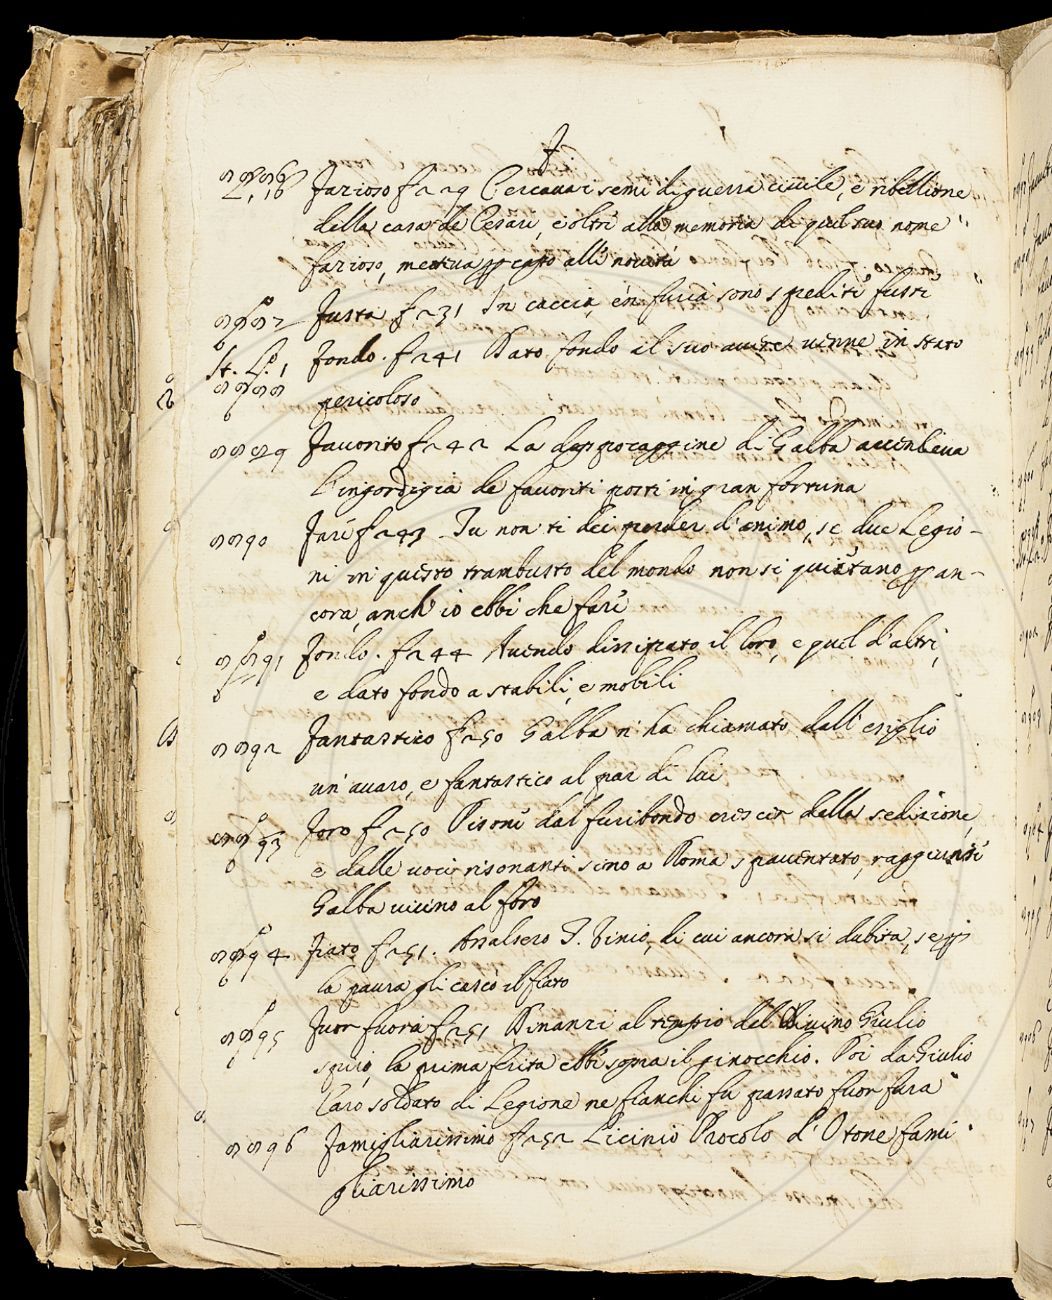 F
Farioso f 229 Cercauasi semi di guerra ciuile, e ribellione
della casa de Cesari, e oltre alla memoria di quel suo nome
farioso, metteua capo alle nouità
Fusta f 231 In caccia, e in furia sono spedite fuste
Fondo. f 241 Dato fondo il suo auere uenne in stato
pericoloso
Fauorito f 242 La dappocaggine di Galba accendeua
L'ingordigia de fauoriti posti in gran fortuna
Fare f 243 Tu non ti dei perder d'animo, se due Legio-
ni in questo trambusto del mondo non si quietano an-
cora, anch'io ebbi che fare
Fondo. f 244 Auendo dissipato il loro, e quel d'altri,
e dato fondo a stabili, e mobili
Fantastico f 250 Galba n'ha chiamato dall'esiglio
un'auaro, e fantastico al par di lui
Foro f 250 Pisone dal furibondo crescer della sedizione,
e dalle uoci risonanti sino a Roma spauentato, raggiunse
Galba uicino al foro
Fiato f 251. Assalsero T. Vinio, di cui ancora si dubita, se
la paura gli cascò il fiato
Fuor fuora f 251 Dinanzi al tempio del Diuino Giulio
spirò, la prima ferita ebbe sopra il ginocchio. Poi da Giulio
Caro soldato di Legione ne fianchi fu passato fuor fura
Famigliarissimo f 252 Licinio Procolo d'Otone fami
gliarissimo